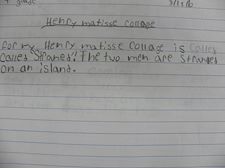 4 grade
Henry matisse collage
for my, Henry matisse Collage is Called
Called Stranded". The two men are Stranded
on an island.